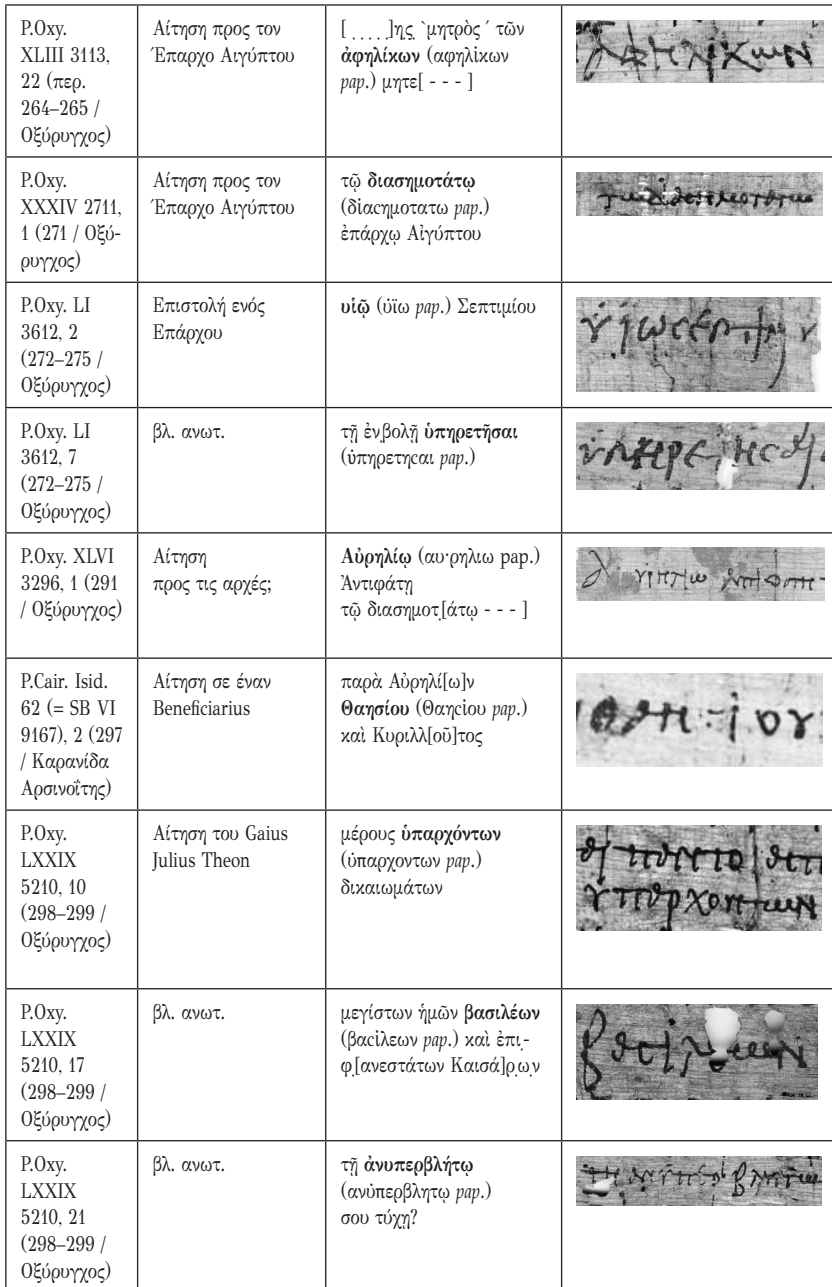 P.Oxy.
XLIII 3113,
22 (περ.
264–265 /
Οξύρυγχος)
Αίτηση προς τον
Έπαρχο Αιγύπτου
[ ̣ ̣ ̣ ̣ ̣]ης̣ ˋμητρὸς ˊ τῶν
ἀφηλίκων (αφηλι̇κων
pap.) μητε[ - - - ]
P.Oxy.
XXXIV 2711,
1 (271 / Οξύ-
ρυγχος)
Αίτηση προς τον
Έπαρχο Αιγύπτου
τῷ διασημοτάτῳ
(δι̇αϲημοτατω pap.)
ἐπάρχῳ Αἰγύπτου
P.Oxy. LI
3612, 2
(272–275 /
Οξύρυγχος)
Επιστολή ενός
Επάρχου
υἱῷ (υ̇ϊω pap.) Σεπτιμίου
P.Oxy. LI
3612, 7
(272–275 /
Οξύρυγχος)
βλ. ανωτ.
τῇ ἐν̣βολῇ ὑπηρετῆσαι
(υ̇πηρετηϲαι pap.)
P.Oxy. XLVI
3296, 1 (291
/ Οξύρυγχος)
Αίτηση
προς τις αρχές;
Αὐρηλίῳ (αυ·ρηλιω pap.)
Ἀντιφάτῃ
τῷ διασημοτ̣[άτῳ - - - ]
P.Cair. Isid.
62 (= SB VI
9167), 2 (297
/ Καρανίδα
Αρσινοΐτης)
Αίτηση σε έναν
Beneficiarius
παρὰ Αὐρηλί[ω]ν
Θαησίου (Θαηϲι̇ου pap.)
καὶ Κυριλλ[οῦ]τος
P.Oxy.
LXXIX
5210, 10
(298–299 /
Οξύρυγχος)
Αίτηση του Gaius
Julius Theon
μέρους ὑπαρχόντων
(υ̇παρχοντων pap.)
δικαιωμάτων
P.Oxy.
LXXIX
5210, 17
(298–299 /
Οξύρυγχος)
βλ. ανωτ.
μεγίστων ἡμῶν βασιλέων
(βαϲι̇λεων pap.) καὶ ἐπι̣-
φ̣[ανεστάτων Καισά]ρ̣ω̣ν
P.Oxy.
LXXIX
5210, 21
(298–299 /
Οξύρυγχος)
βλ. ανωτ.
τῇ ἀνυπερβλήτῳ
(ανυ̇περβλητῳ pap.)
σου τύχῃ?